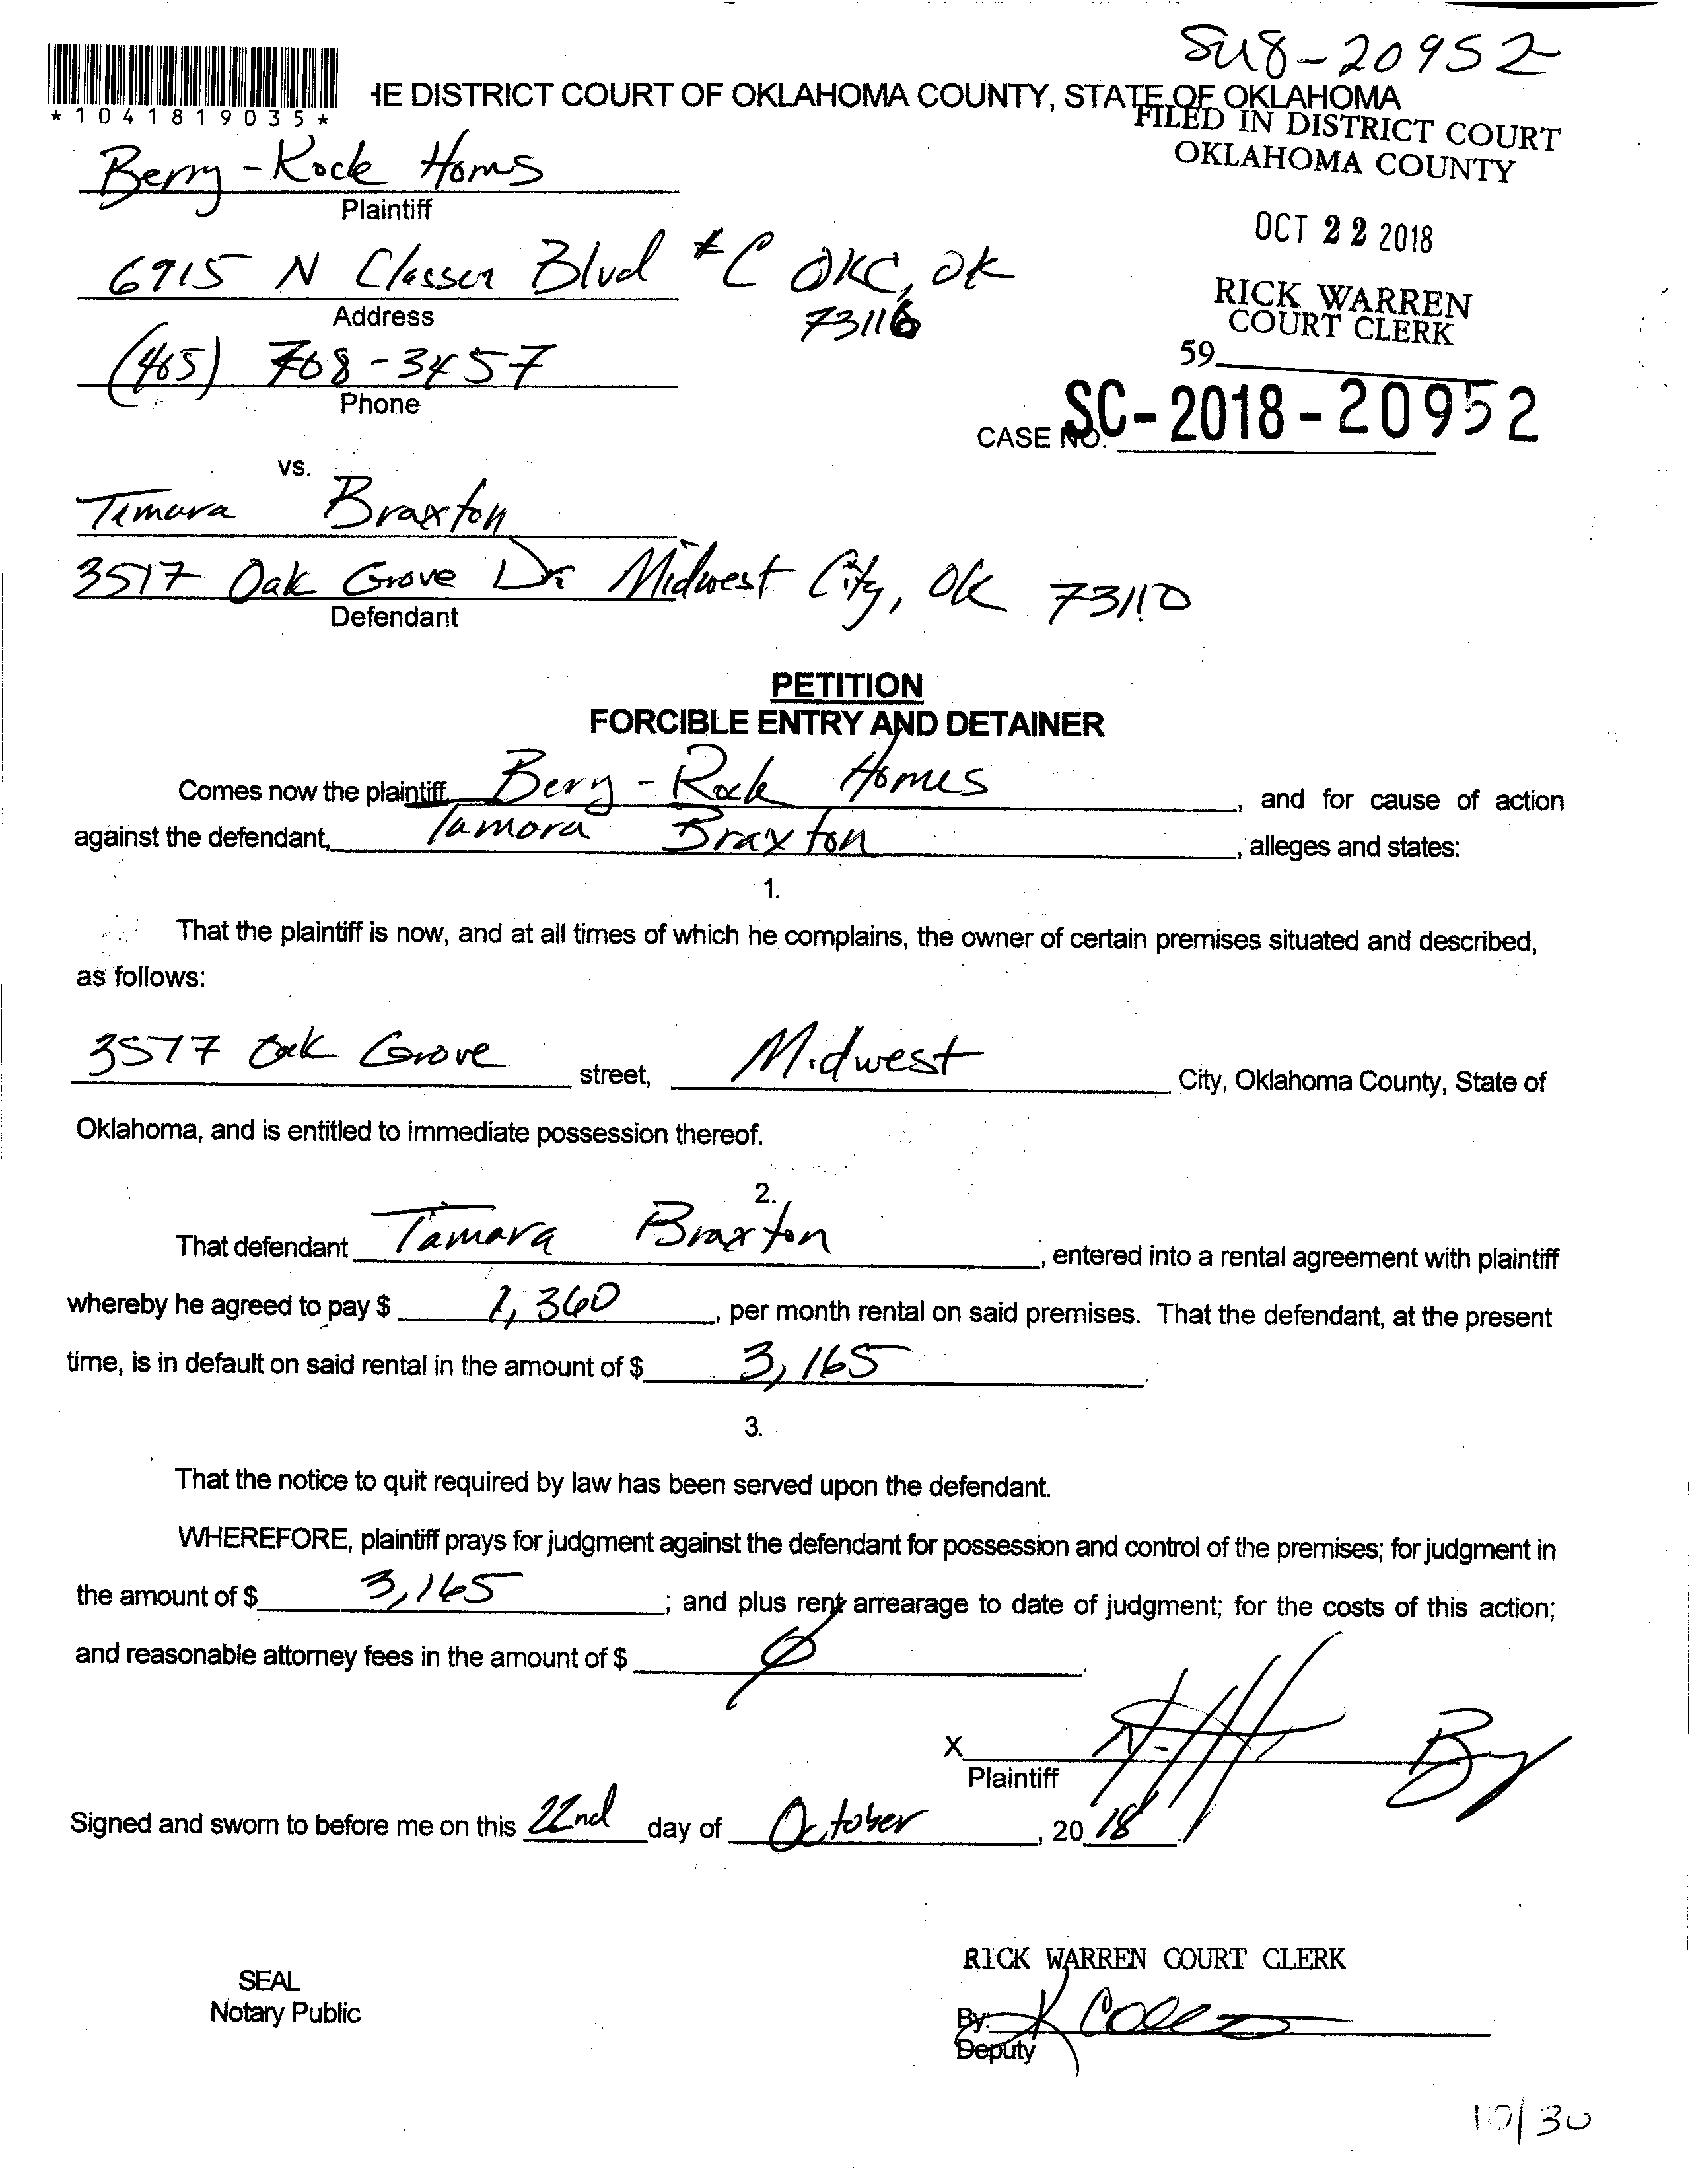 SC18-20952
*1041819035*
HE DISTRICT COURT OF OKLAHOMA COUNTY, STATE OF OKLAHOMA
FILED IN DISTRICT COURT
OKLAHOMA COUNTY
Berry-Rock Homs
Plaintiff
OCT 22 2018
6915 N Classen Blvd #C OKC, OK
73116
Address
RICK WARREN
COURT CLERK
59
(405) 708-3457
Phone
CASE NO. SC-2018-20952
vs.
Tamara Braxton
3517 Oak Grove Dr. Midwest City, OK 73110
Defendant
PETITION
FORCIBLE ENTRY AND DETAINER
Comes now the plaintiff Berry-Rock Homes, and for cause of action
against the defendant, Tamara Braxton, alleges and states:
1.
That the plaintiff is now, and at all times of which he complains, the owner of certain premises situated and described,
as follows:
3517 Oak Grove street, Midwest City, Oklahoma County, State of
Oklahoma, and is entitled to immediate possession thereof.
2.
That defendant Tamara Braxton, entered into a rental agreement with plaintiff
whereby he agreed to pay $ 1,360, per month rental on said premises. That the defendant, at the present
time, is in default on said rental in the amount of $ 3,165.
3.
That the notice to quit required by law has been served upon the defendant.
WHEREFORE, plaintiff prays for judgment against the defendant for possession and control of the premises; for judgment in
the amount of $ 3,165; and plus rent arrearage to date of judgment; for the costs of this action;
and reasonable attorney fees in the amount of $ 0.
X
Plaintiff
Signed and sworn to before me on this 22nd day of October, 2018.
RICK WARREN COURT CLERK
SEAL
Notary Public
By: K
Deputy
10/30